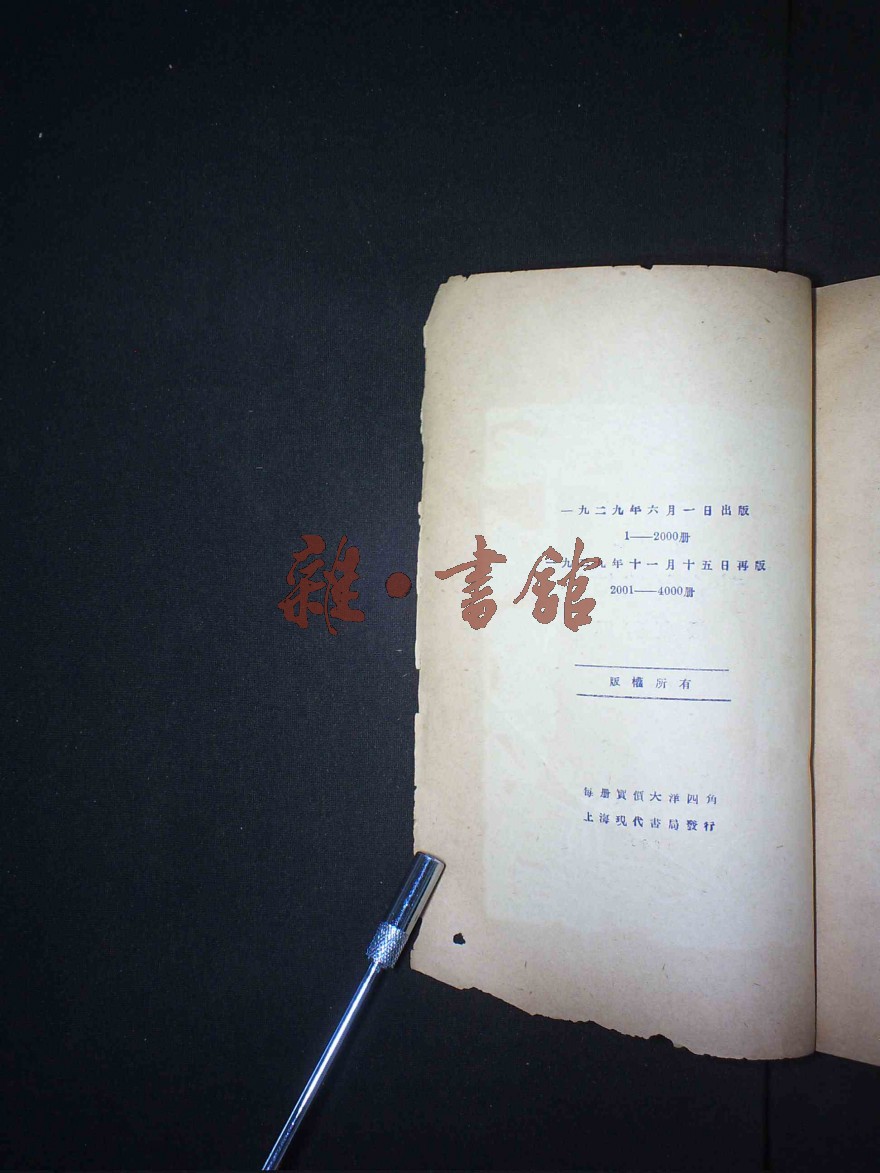 一九二九年六月一日出版
1——2000册
一九二九年十一月十五日再版
2001——4000册
雜·書館
版權所有
每册實價大洋四角
上海現代書局發行